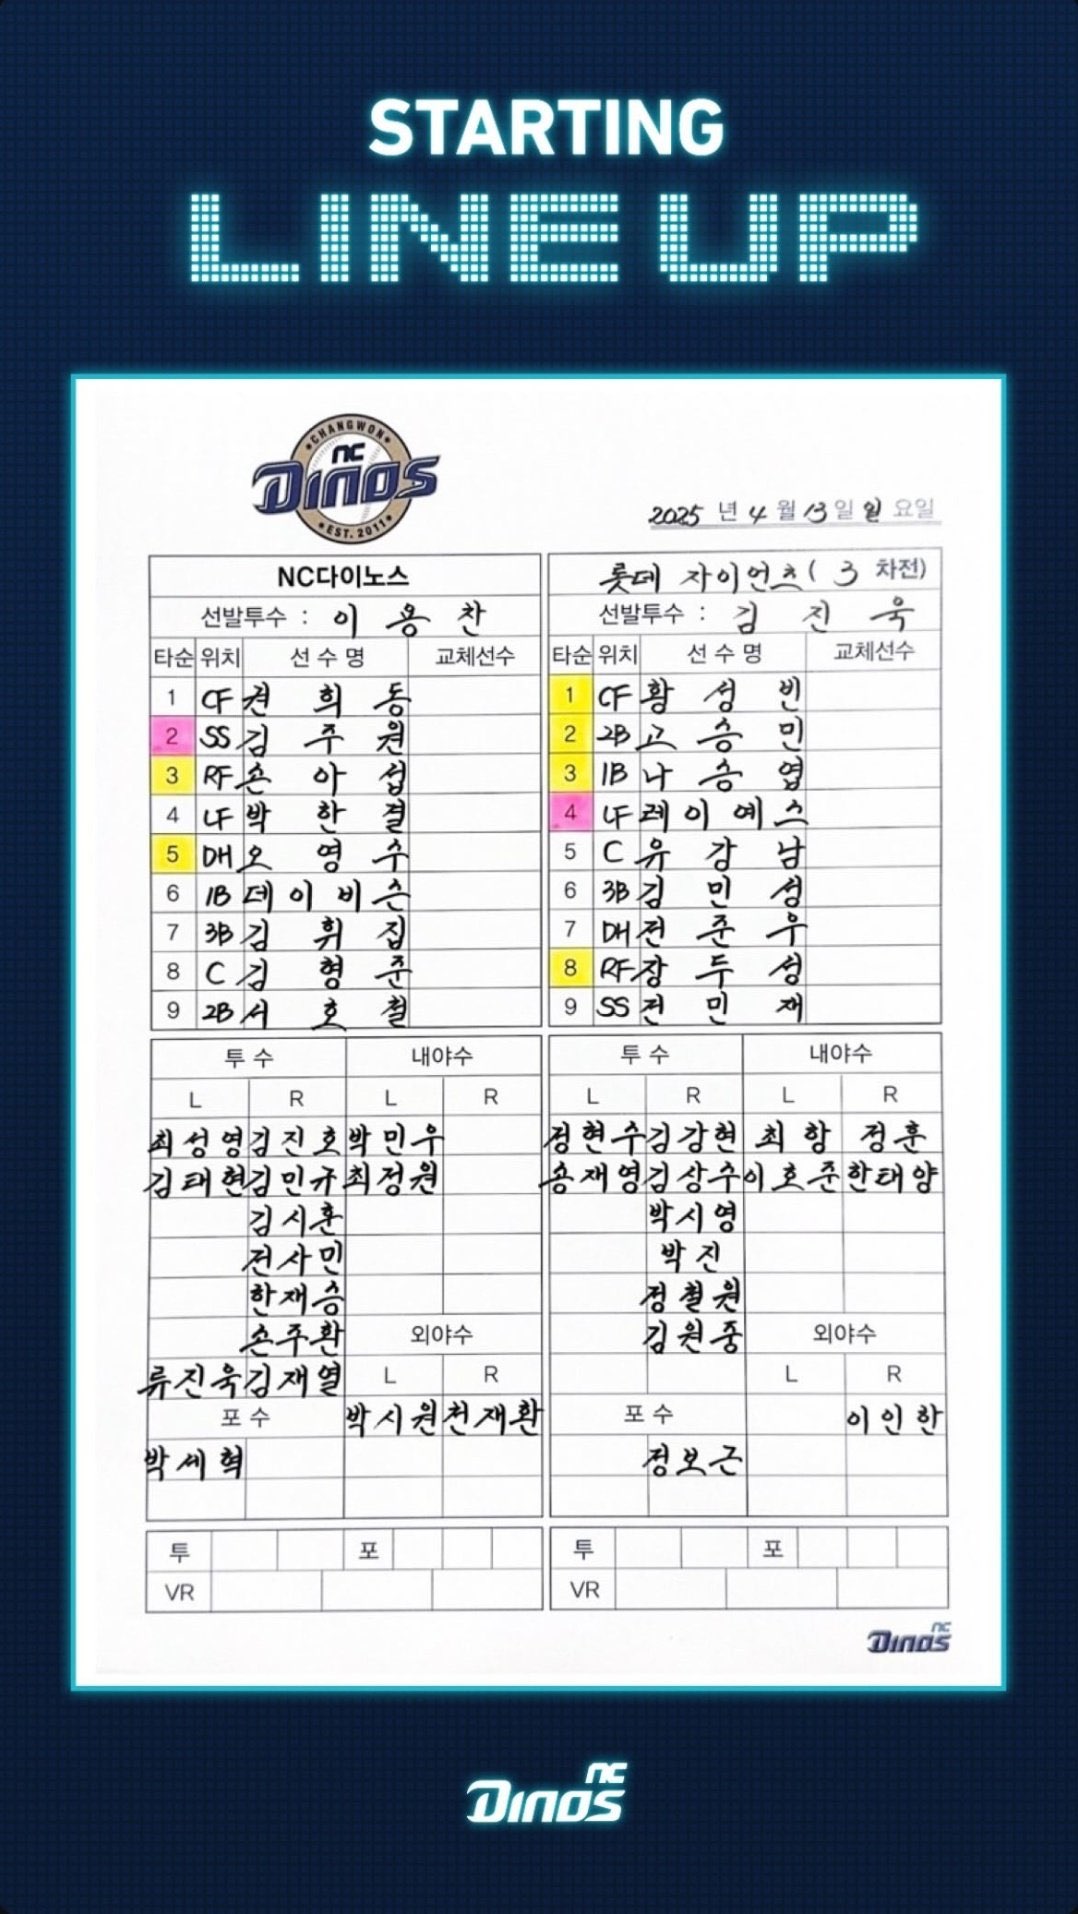 STARTING
LINE UP
CHANGWON
NC
DINOS
EST. 2011
2025 년 4 월 13 일 일 요일
NC다이노스
선발투수 : 이 용 찬
타순 위치 선 수 명 교체선수
1 CF 권 희 동
2 SS 김 주 원
3 RF 손 아 섭
4 LF 박 한 결
5 DH 오 영 수
6 1B 데 이 비 슨
7 3B 김 휘 집
8 C 김 형 준
9 2B 서 호 철
롯데 자이언츠 ( 3 차전)
선발투수 : 김 진 욱
타순 위치 선 수 명 교체선수
1 CF 황 성 빈
2 2B 고 승 민
3 1B 나 승 엽
4 LF 레 이 예 스
5 C 유 강 남
6 3B 김 민 성
7 DH 전 준 우
8 RF 장 두 성
9 SS 전 민 재
투 수 내야수
L R L R
최성영 김진호 박민우
김태현 김민규 최정원
김시훈
전사민
한재승
손주환 외야수
류진욱 김재열 L R
포 수 박시원 천재환
박세혁
투 포
VR
투 수 내야수
L R L R
정현수 김강현 최항 정훈
송재영 김상수 이호준 한태양
박시영
박진
정철원
김원중 외야수
L R
포 수 이인한
정보근
투 포
VR
NC
DINOS
NC
DINOS